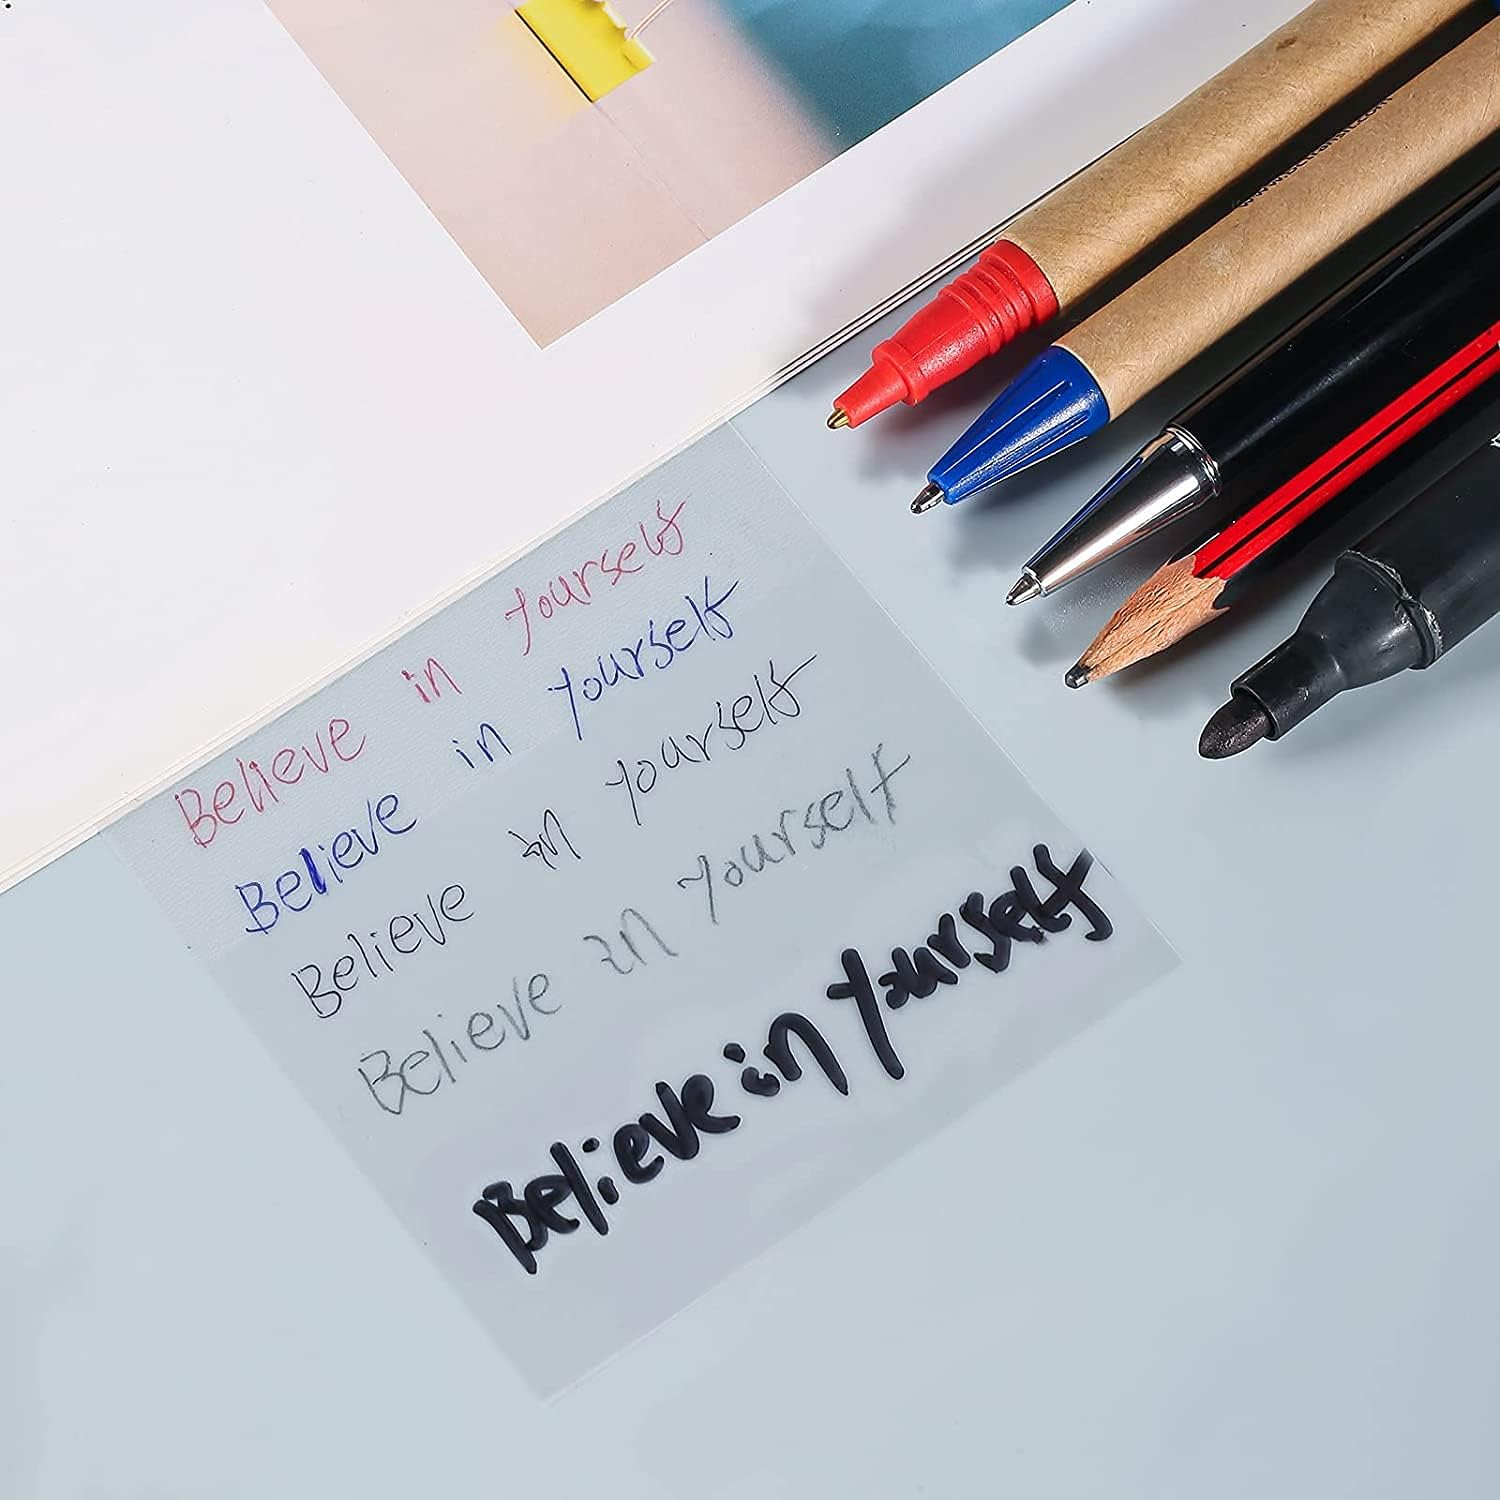 Believe in yourself
Believe in yourself
Believe in yourself
Believe in yourself
Believe in yourself